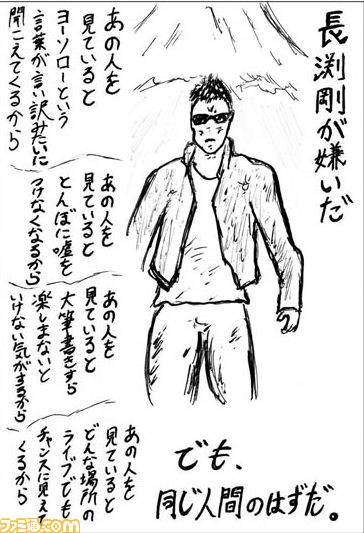 長渕剛が嫌いだ
あの人を
見ていると
ヨーソローという
言葉が言い訳みたいに
聞こえてくるから
あの人を
見ていると
とんぼに嘘を
つけなくなるから
あの人を
見ていると
大筆書きすら
楽しまないと
いけない気がするから
あの人を
見ていると
どんな場所の
ライブでも
チャンスに見えて
くるから
でも、
同じ人間のはずだ。
ファミ通.com